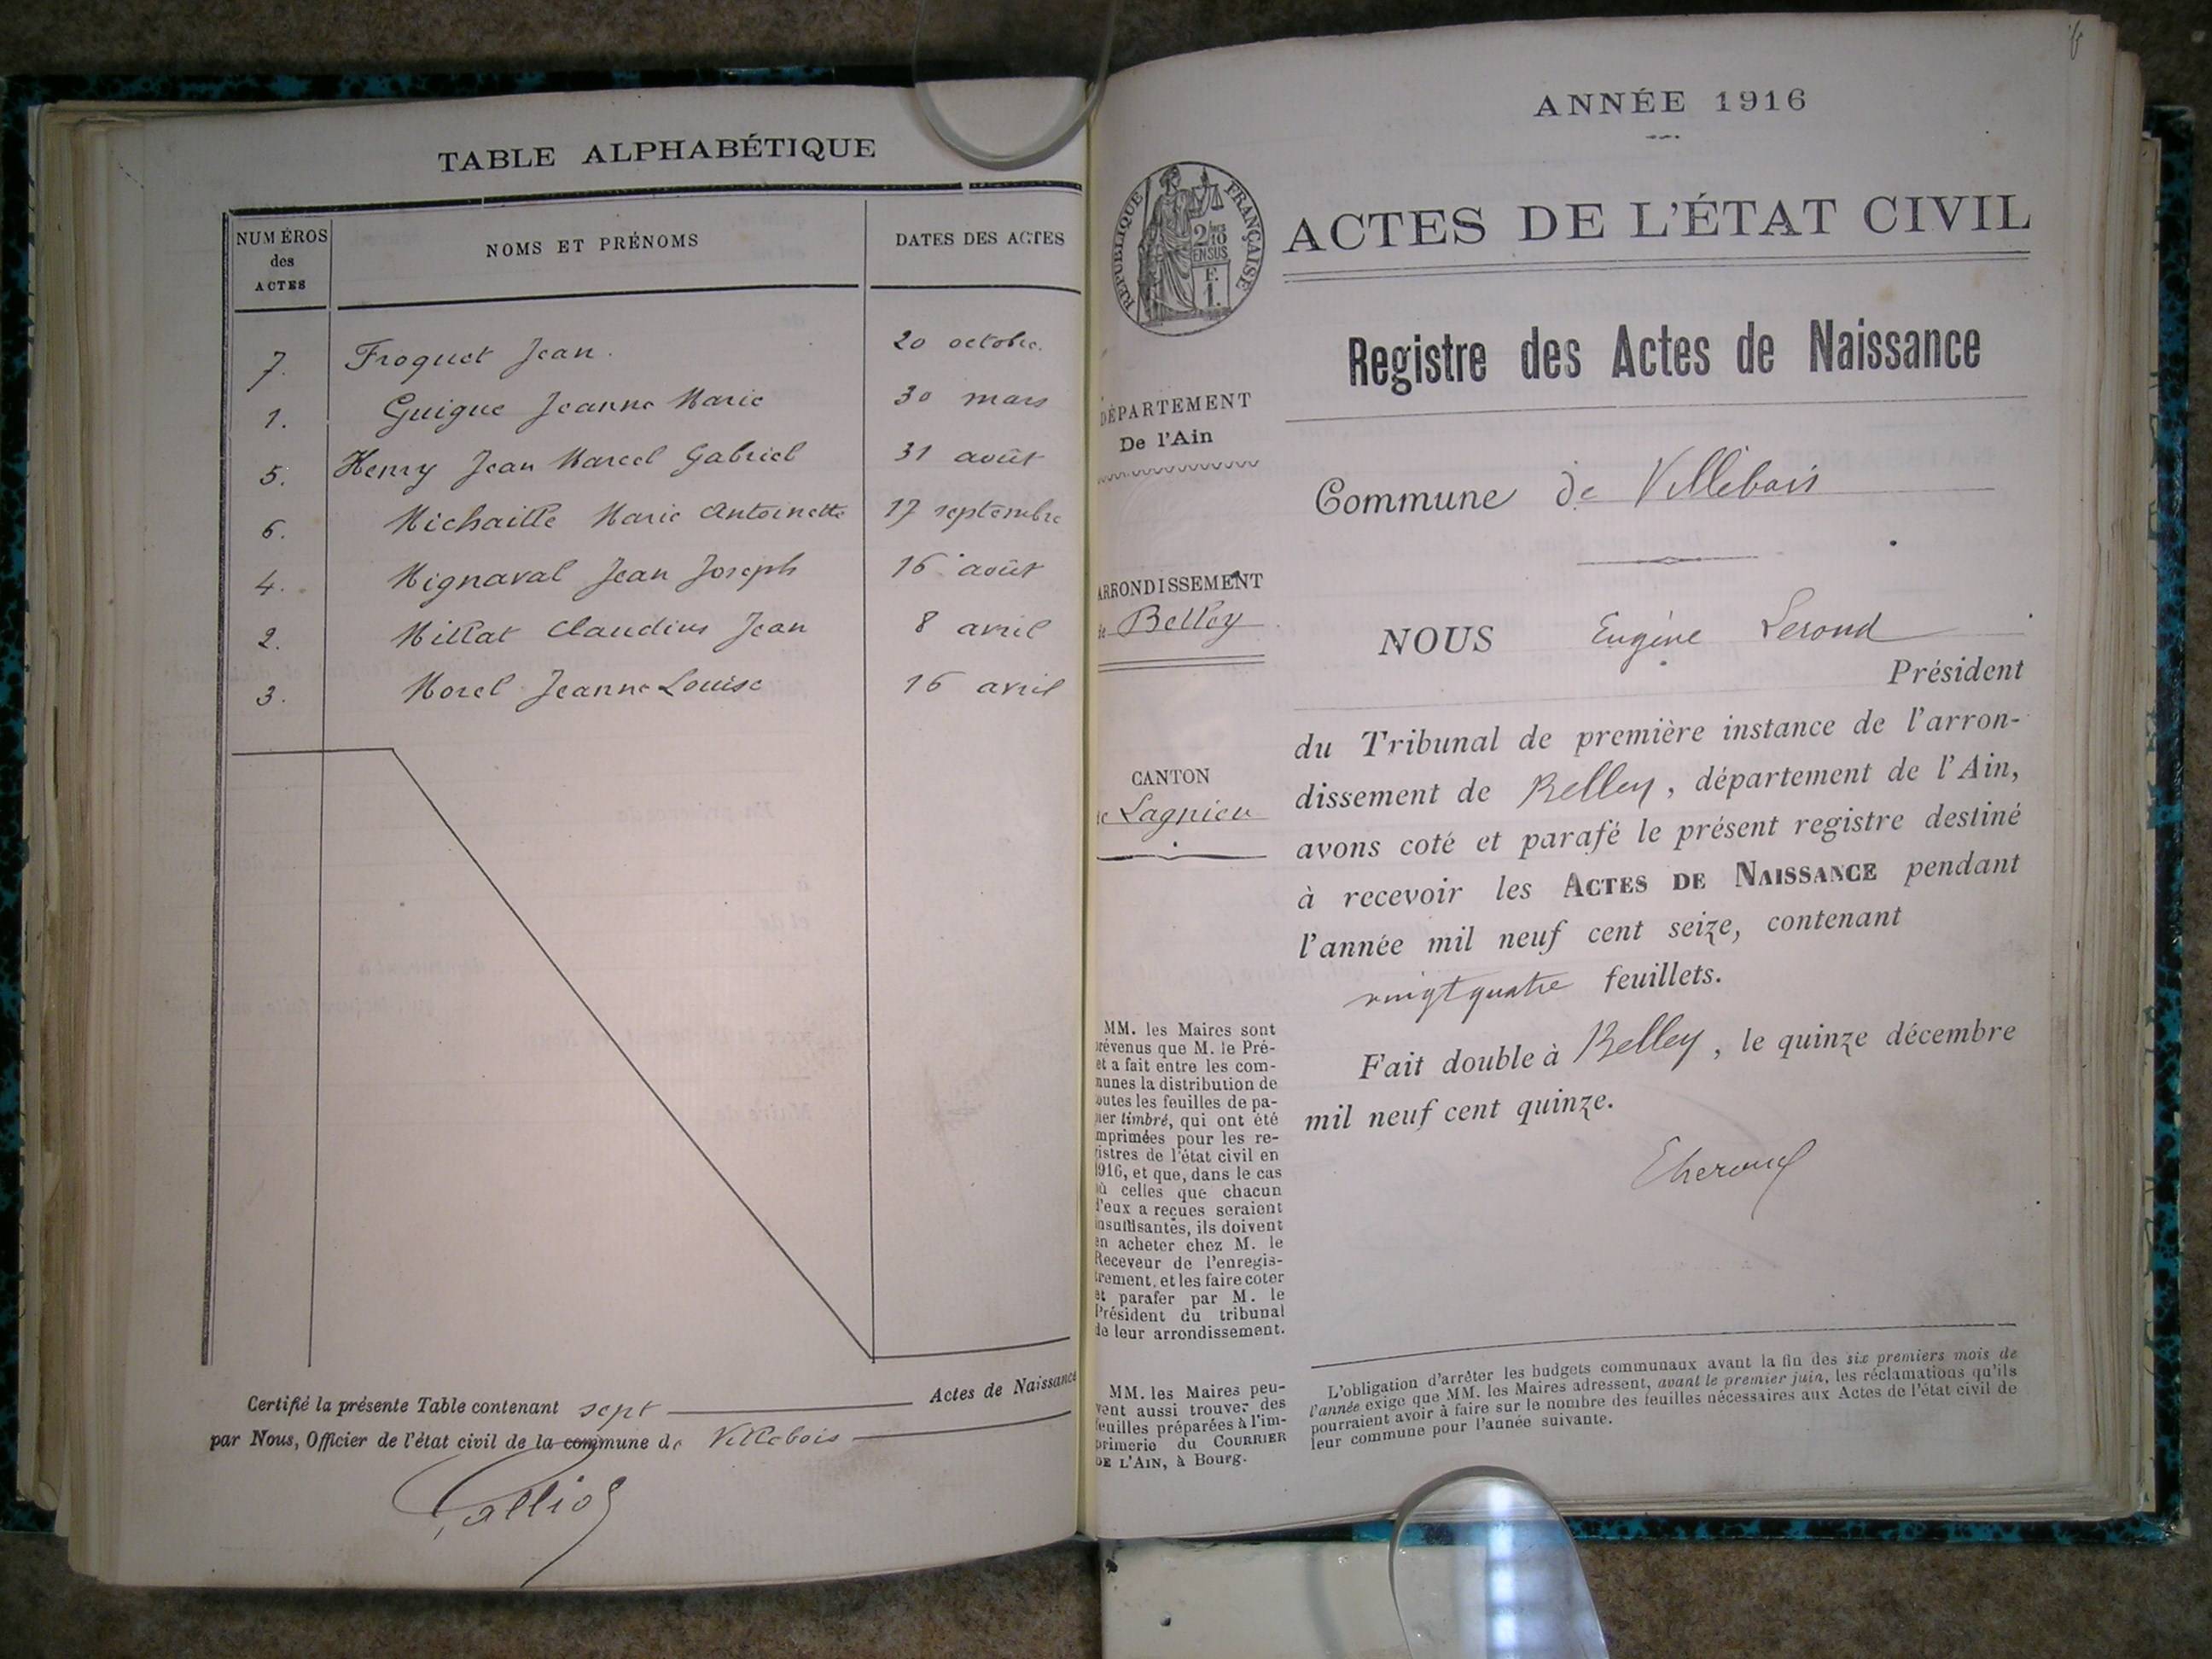 TABLE ALPHABÉTIQUE
NUMÉROS des ACTES
NOMS ET PRÉNOMS
DATES DES ACTES
7. Froquet Jean. 20 octobre.
1. Guigue Jeanne Marie 30 mars
5. Henry Jean Marcel Gabriel 31 août
6. Michaille Marie Antoinette 17 septembre
4. Mignaval Jean Joseph 16 août
2. Millat Claudius Jean 8 avril
3. Morel Jeanne Louise 16 avril
Certifié la présente Table contenant sept Actes de Naissance
par Nous, Officier de l'état civil de la commune de Villebois
ANNÉE 1916
RÉPUBLIQUE FRANÇAISE
2/10
EN SUS
F.
1.
ACTES DE L'ÉTAT CIVIL
Registre des Actes de Naissance
DÉPARTEMENT
De l'Ain
Commune de Villebois
ARRONDISSEMENT
de Belley
CANTON
de Lagnieu
NOUS Eugène Lerond
Président
du Tribunal de première instance de l'arron-
dissement de Belley, département de l'Ain,
avons coté et parafé le présent registre destiné
à recevoir les ACTES DE NAISSANCE pendant
l'année mil neuf cent seize, contenant
vingt quatre feuillets.
Fait double à Belley, le quinze décembre
mil neuf cent quinze.
MM. les Maires sont
prévenus que M. le Pré-
fet a fait entre les com-
munes la distribution de
toutes les feuilles de pa-
pier timbré, qui ont été
imprimées pour les re-
gistres de l'état civil en
1916, et que, dans le cas
où celles que chacun
d'eux a reçues seraient
insuffisantes, ils doivent
en acheter chez M. le
Receveur de l'enregis-
trement, et les faire coter
et parafer par M. le
Président du tribunal
de leur arrondissement.
MM. les Maires peu-
vent aussi trouver des
feuilles préparées à l'im-
primerie du COURRIER
DE L'AIN, à Bourg.
L'obligation d'arrêter les budgets communaux avant la fin des six premiers mois de
l'année exige que MM. les Maires adressent, avant le premier juin, les réclamations qu'ils
pourraient avoir à faire sur le nombre des feuilles nécessaires aux Actes de l'état civil de
leur commune pour l'année suivante.